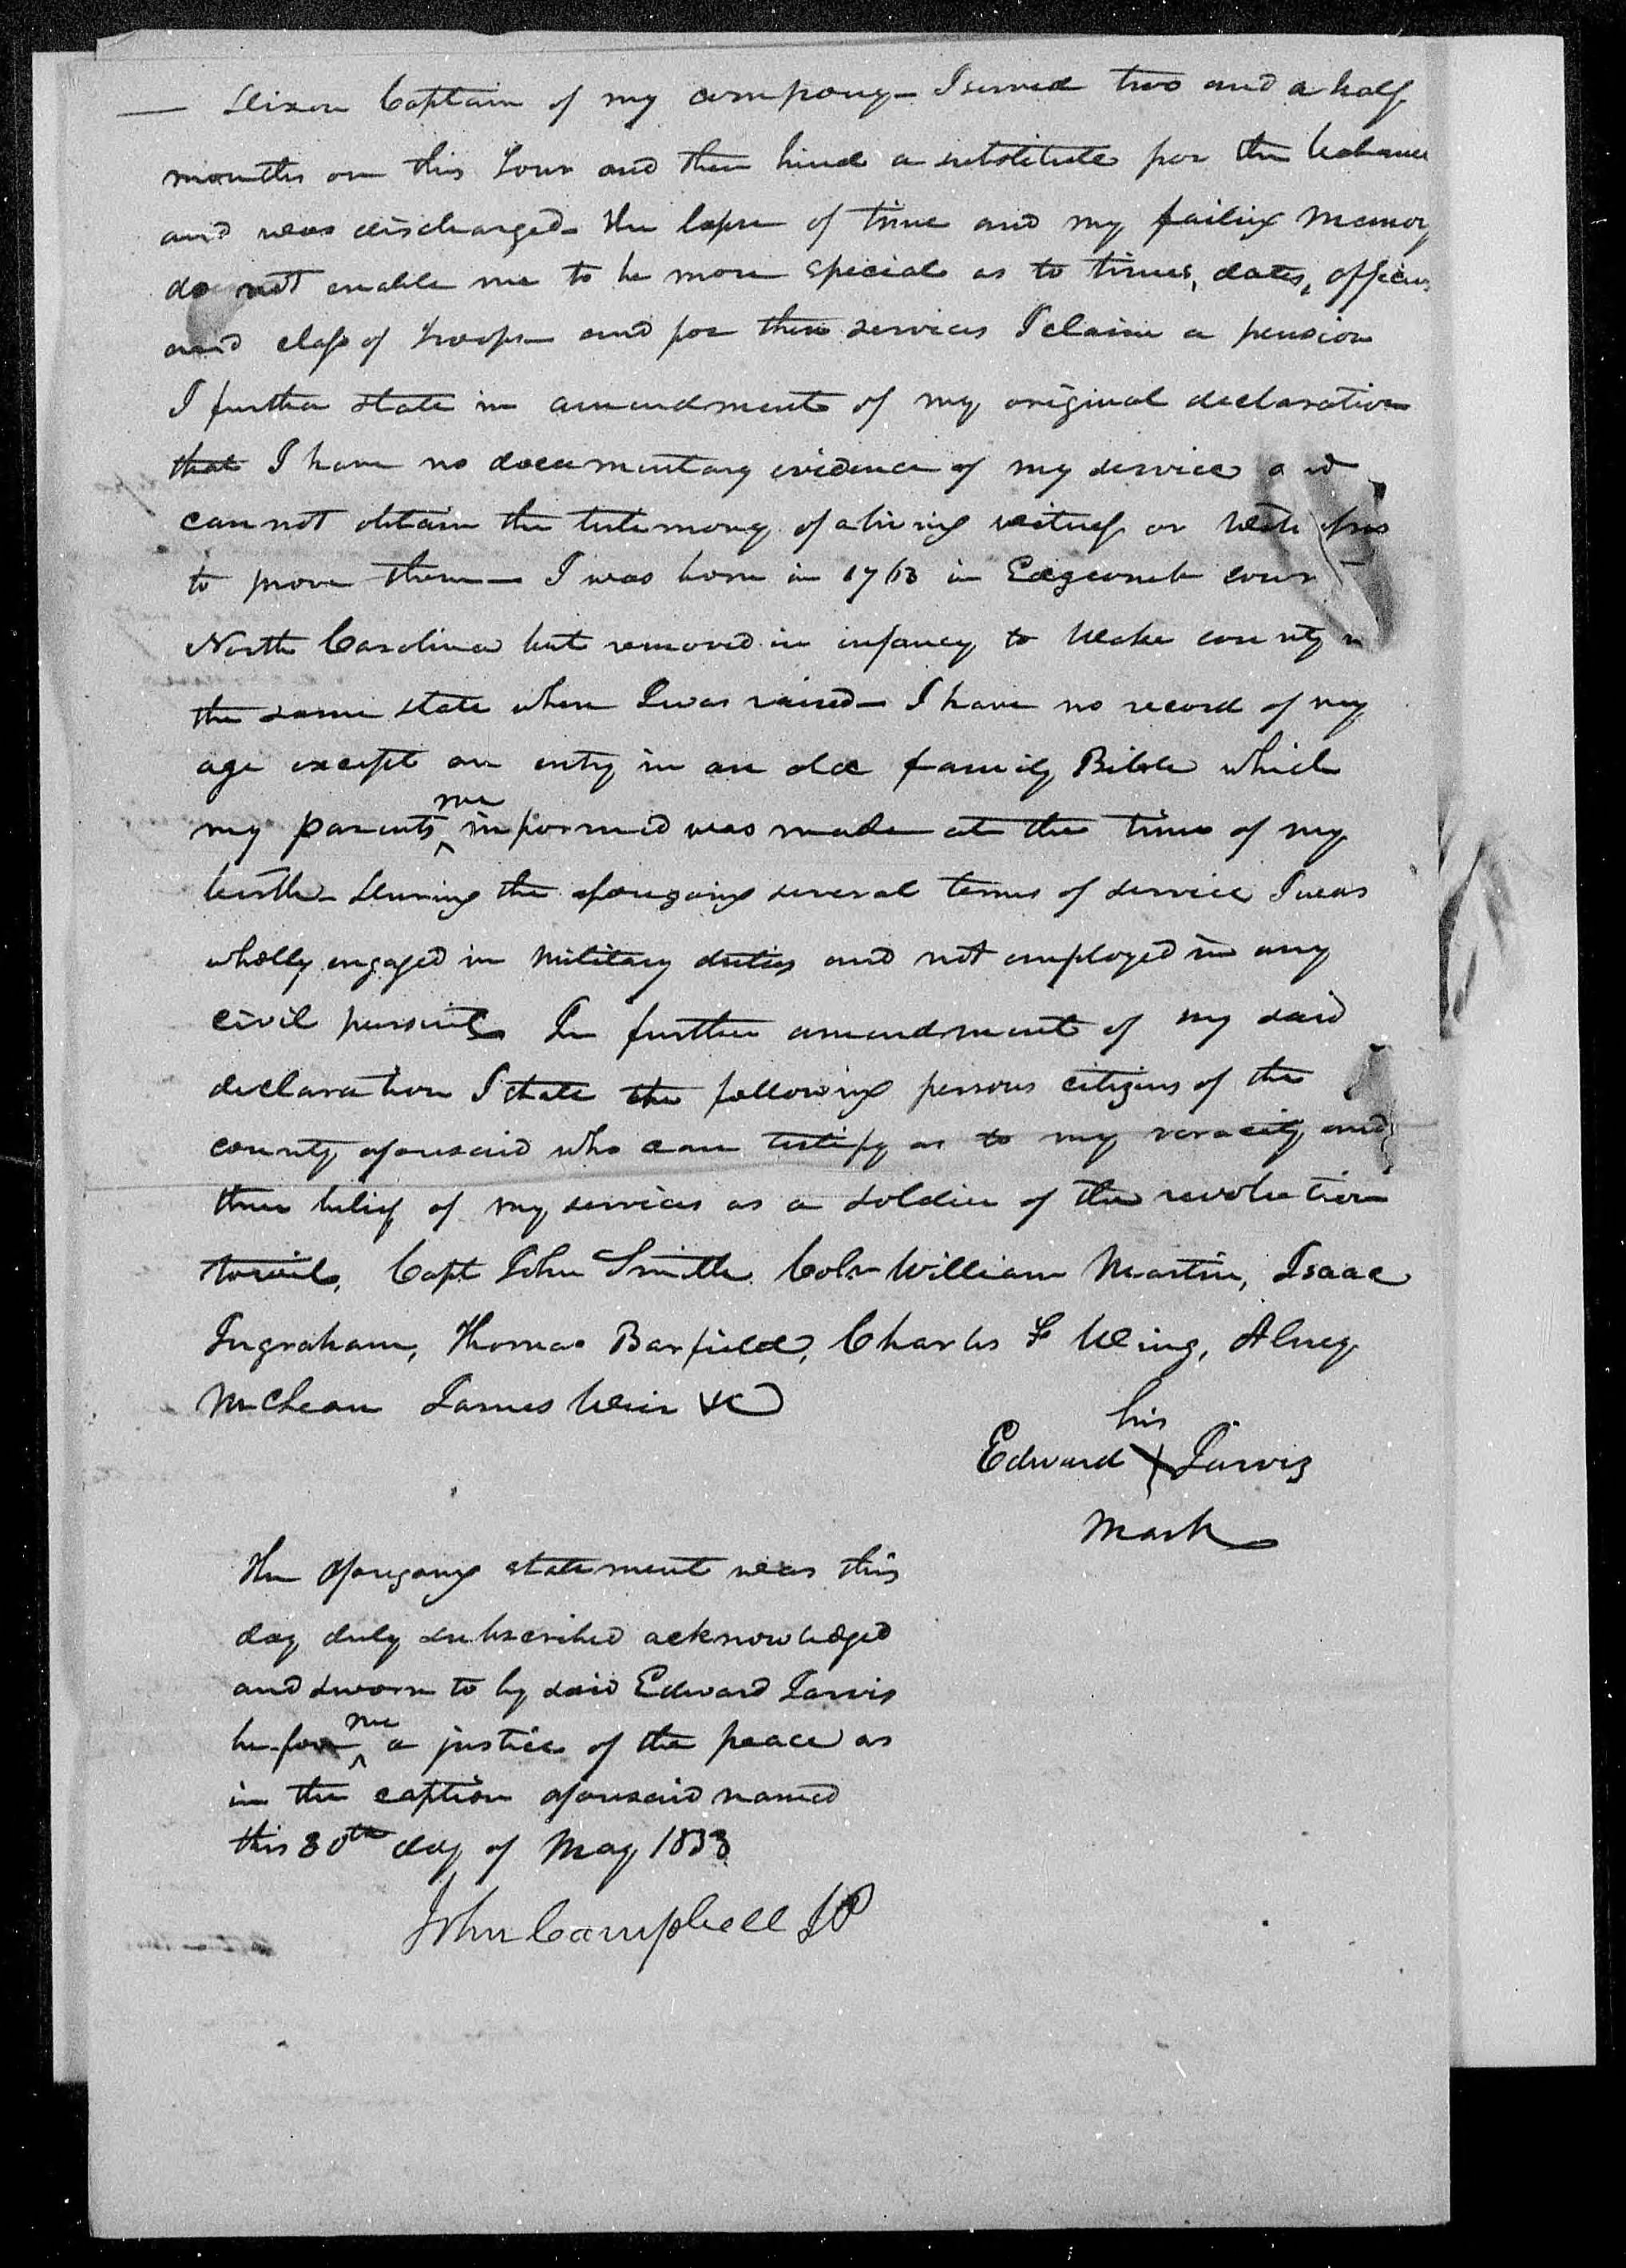 — Dixon Captain of my company – I served two and a half
months on this tour and then hired a substitute for the balance
and was discharged – The lapse of time and my failing memory
do not enable me to be more special as to times, dates, officers
and class of troops – and for these services I claim a pension
I further state in amendment of my original declaration
that I have no documentary evidence of my service and
can not obtain the testimony of a living witness or witnesses
to prove them – I was born in 1763 in Edgecomb coun
North Carolina but removed in infancy to Wake county in
the same state where I was raised – I have no record of my
age except an entry in an old family Bible which
my parents me informed was made at the time of my
birth – During the aforegoing several terms of service I was
wholly engaged in military duties and not employed in any
civil pursuits In further amendment of my said
declaration I state the following persons citizens of the
county aforesaid who can testify as to my veracity and
their belief of my services as a soldier of the revolution
towit, Capt John Smith Coln William Martin, Isaac
Ingraham, Thomas Barfield, Charles F Wing, Alney
McLean James Weir &C
his
Edward X Jarvis
mark
The aforegoing statement was this
day duly subscribed acknowledged
and sworn to by said Edward Jarvis
before me a justice of the peace as
in the caption aforesaid named
this 30th day of May 1833
John Campbell JP